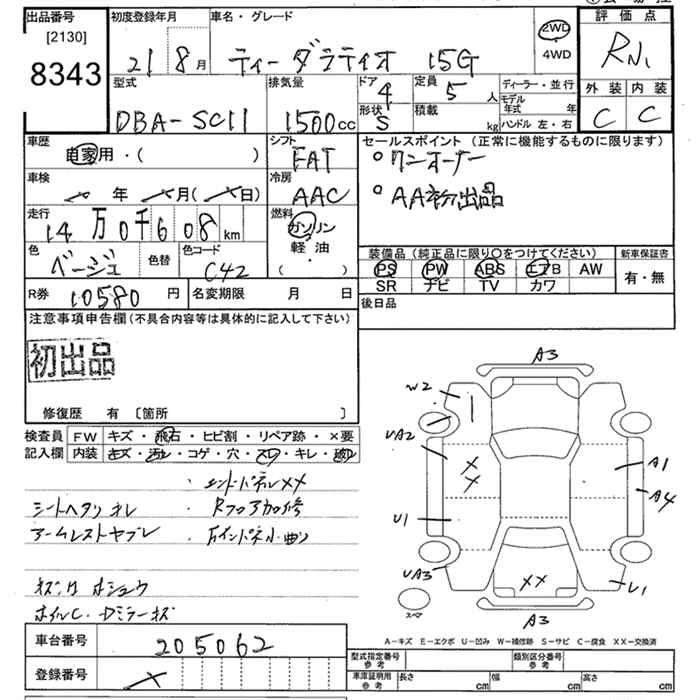 出品番号
[2130]
8343
初度登録年月
21 8月
車名・グレード
ティーダラティオ 15G
2WD
4WD
評価点
外装 内装
C C
型式
DBA-SC11
排気量
1500cc
ドア
4
形状
S
定員
5人
積載
kg
ディーラー・並行
モデル年式 年
ハンドル 左・右
車歴
自家用・( )
シフト
FAT
セールスポイント(正常に機能するものに限ります)
○ワンオーナー
○AA初出品
車検
年 月( 日)
冷房
AAC
走行
14万0千608km
燃料
ガソリン
軽・油
( ・ )
色
ベージュ
色替
色コード
C42
装備品(純正品に限り○をつけてください)
PS PW ABS エアB AW
SR ナビ TV カワ
新車保証書
有・無
R券
10580円
名変期限 月 日
後日品
注意事項申告欄(不具合内容等は具体的に記入して下さい)
初出品
修復歴 有〔箇所 〕
検査員 FW キズ・飛石・ヒビ割・リペア跡・×要
記入欄 内装 キズ・汚レ・コゲ・穴・スレ・キレ・破レ
・エンドパネルXX
シートヘタリ オレ ・Rフロア加修
アームレストヤブレ
A3
W2
UA2
A1
A4
U1
UA3
XX
U1
スペア
A3
車台番号
205062
登録番号
A-キズ E-エクボ U-凹み W-補修跡 S-サビ C-腐食 XX-交換済
型式指定番号 参考
類別区分番号 参考
車庫証明用 参考
長さ cm 幅 cm 高さ cm